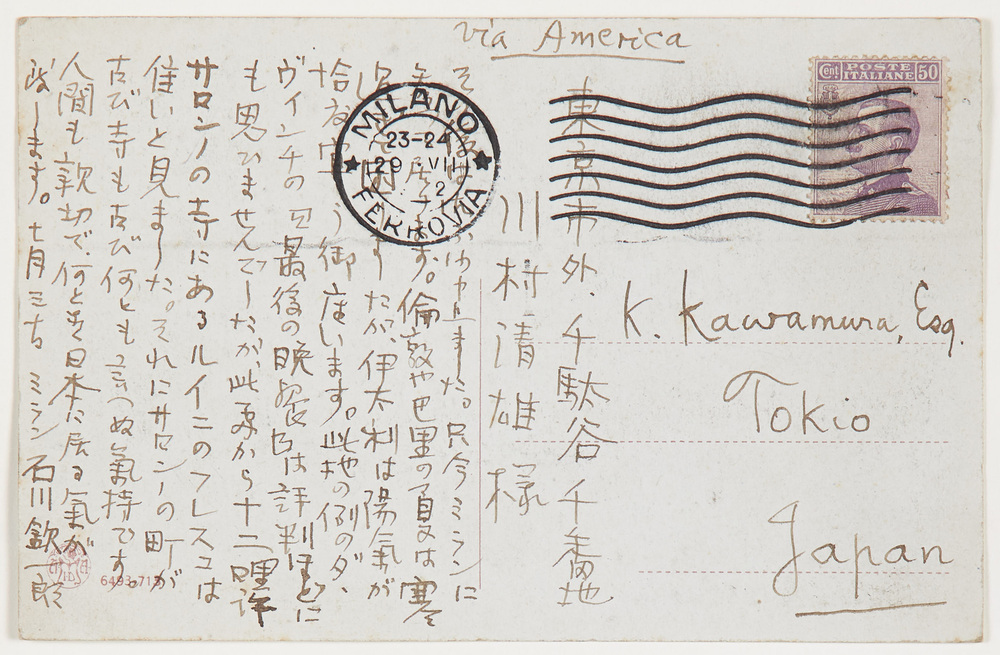 via America
Cent POSTE ITALIANE 50
MILANO
23-24
29 VIII
2
FERROVIA
東京市外、千駄谷千番地
川村清雄様
K. Kawamura, Esq.
Tokio
Japan
ました。只今ミランに
居ます。倫敦や巴里の夏は寒
たが、伊太利は陽気が
御座います。此地の例のダ、
ヴインチの最後の晩餐は評判ほどに
も思ひませんでしたが、此処から十二哩許
サロンノの寺にあるルイニのフレスコは
佳いと見ました。それにサロンノの町が
古び寺も古び何とも言へぬ氣持です。
人間も親切で何となく日本に居る氣が
致します。七月三十 ミラン 石川欽一郎
6493-71